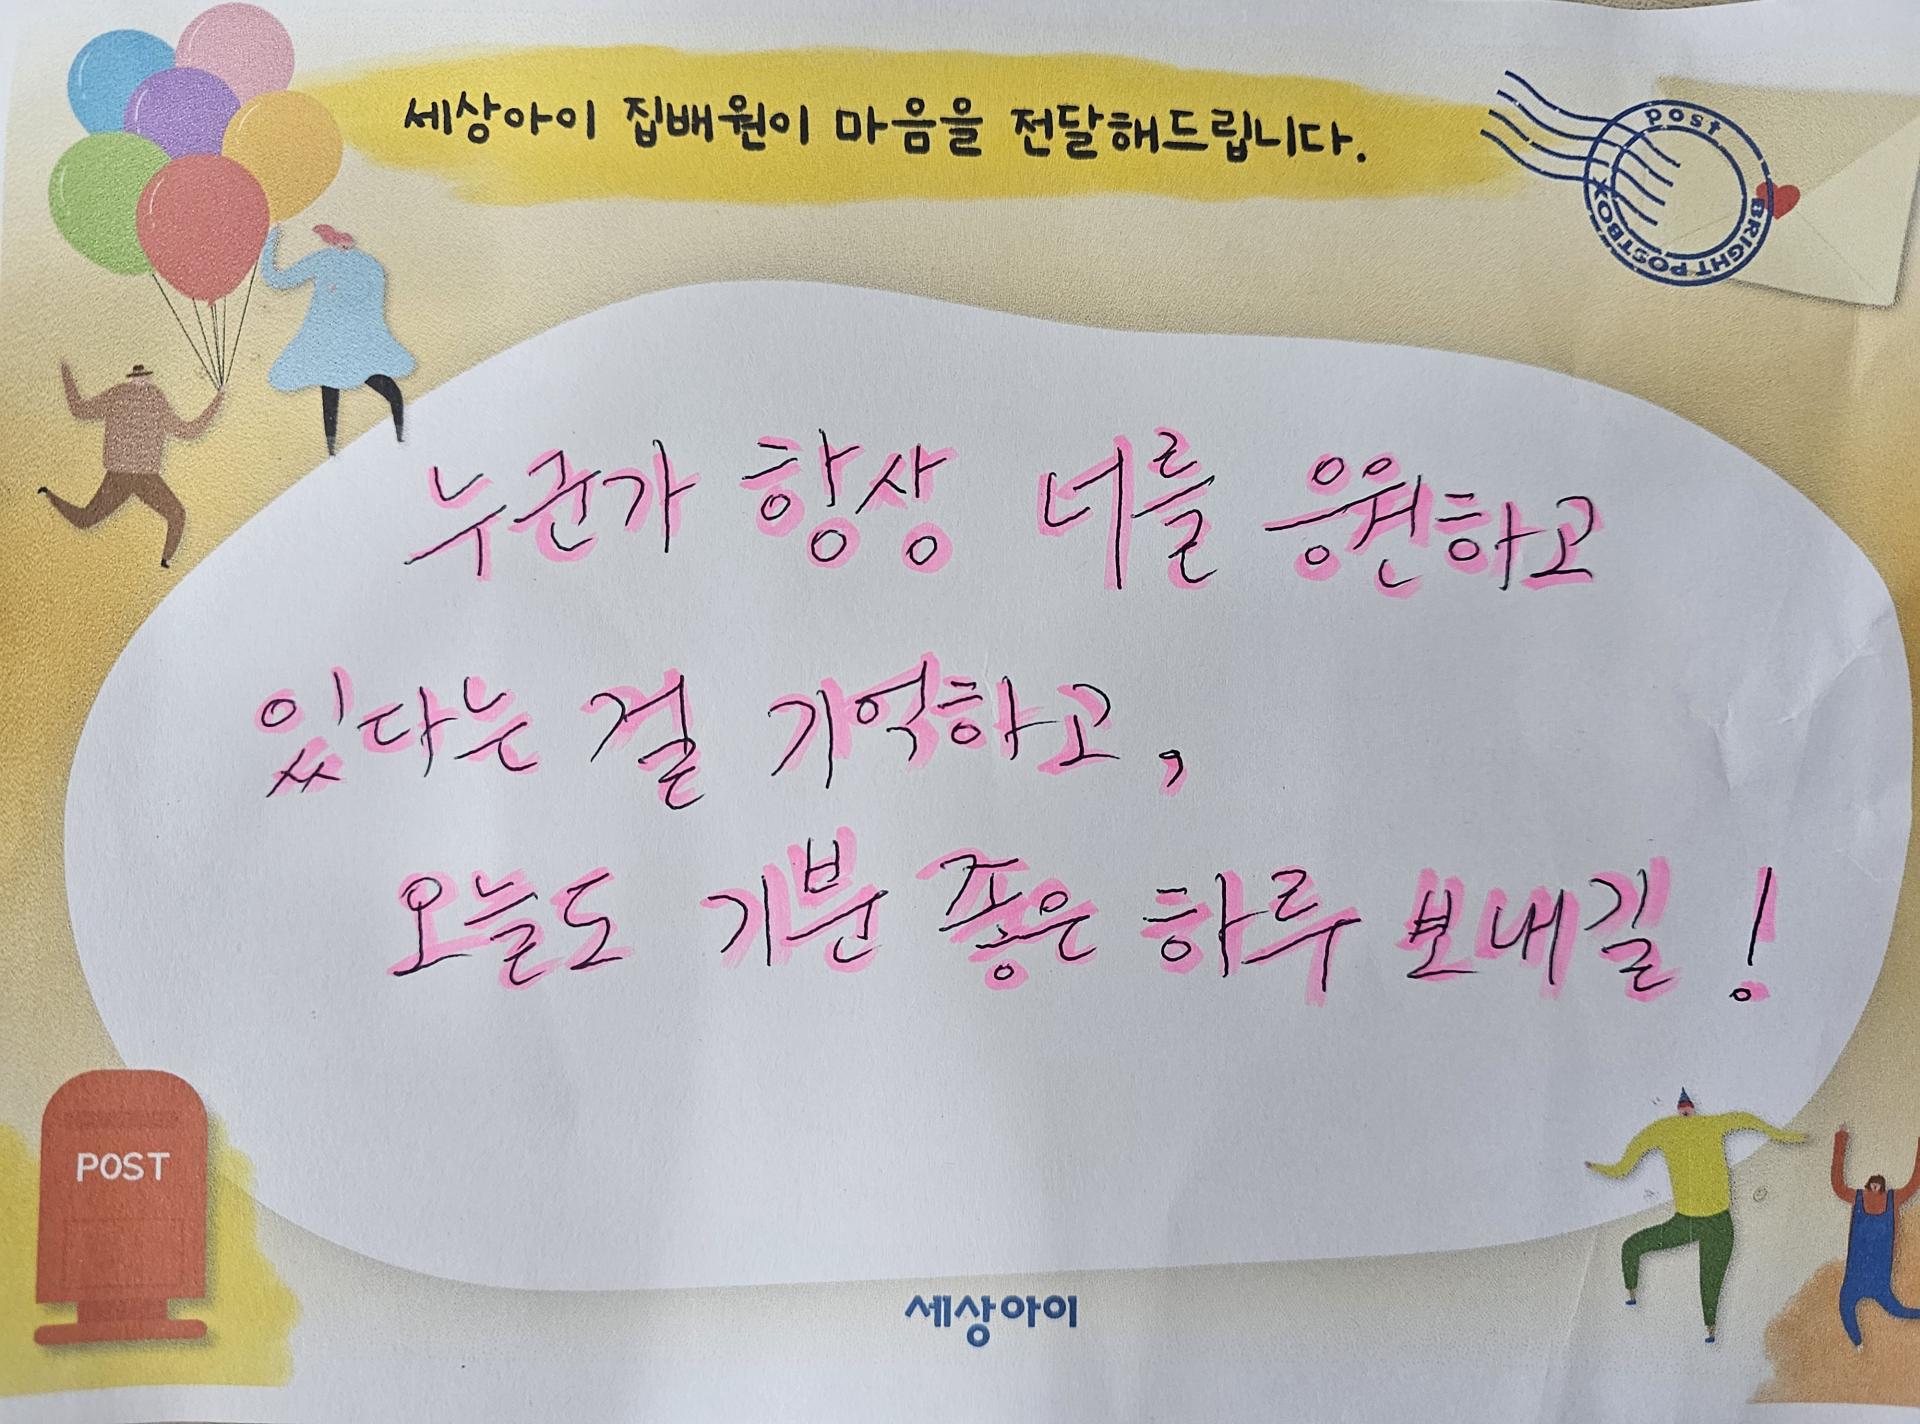 세상아이 집배원이 마음을 전달해드립니다.
post
BRIGHT POSTBOX
누군가 항상 너를 응원하고
있다는 걸 기억하고,
오늘도 기분 좋은 하루 보내길!
POST
세상아이